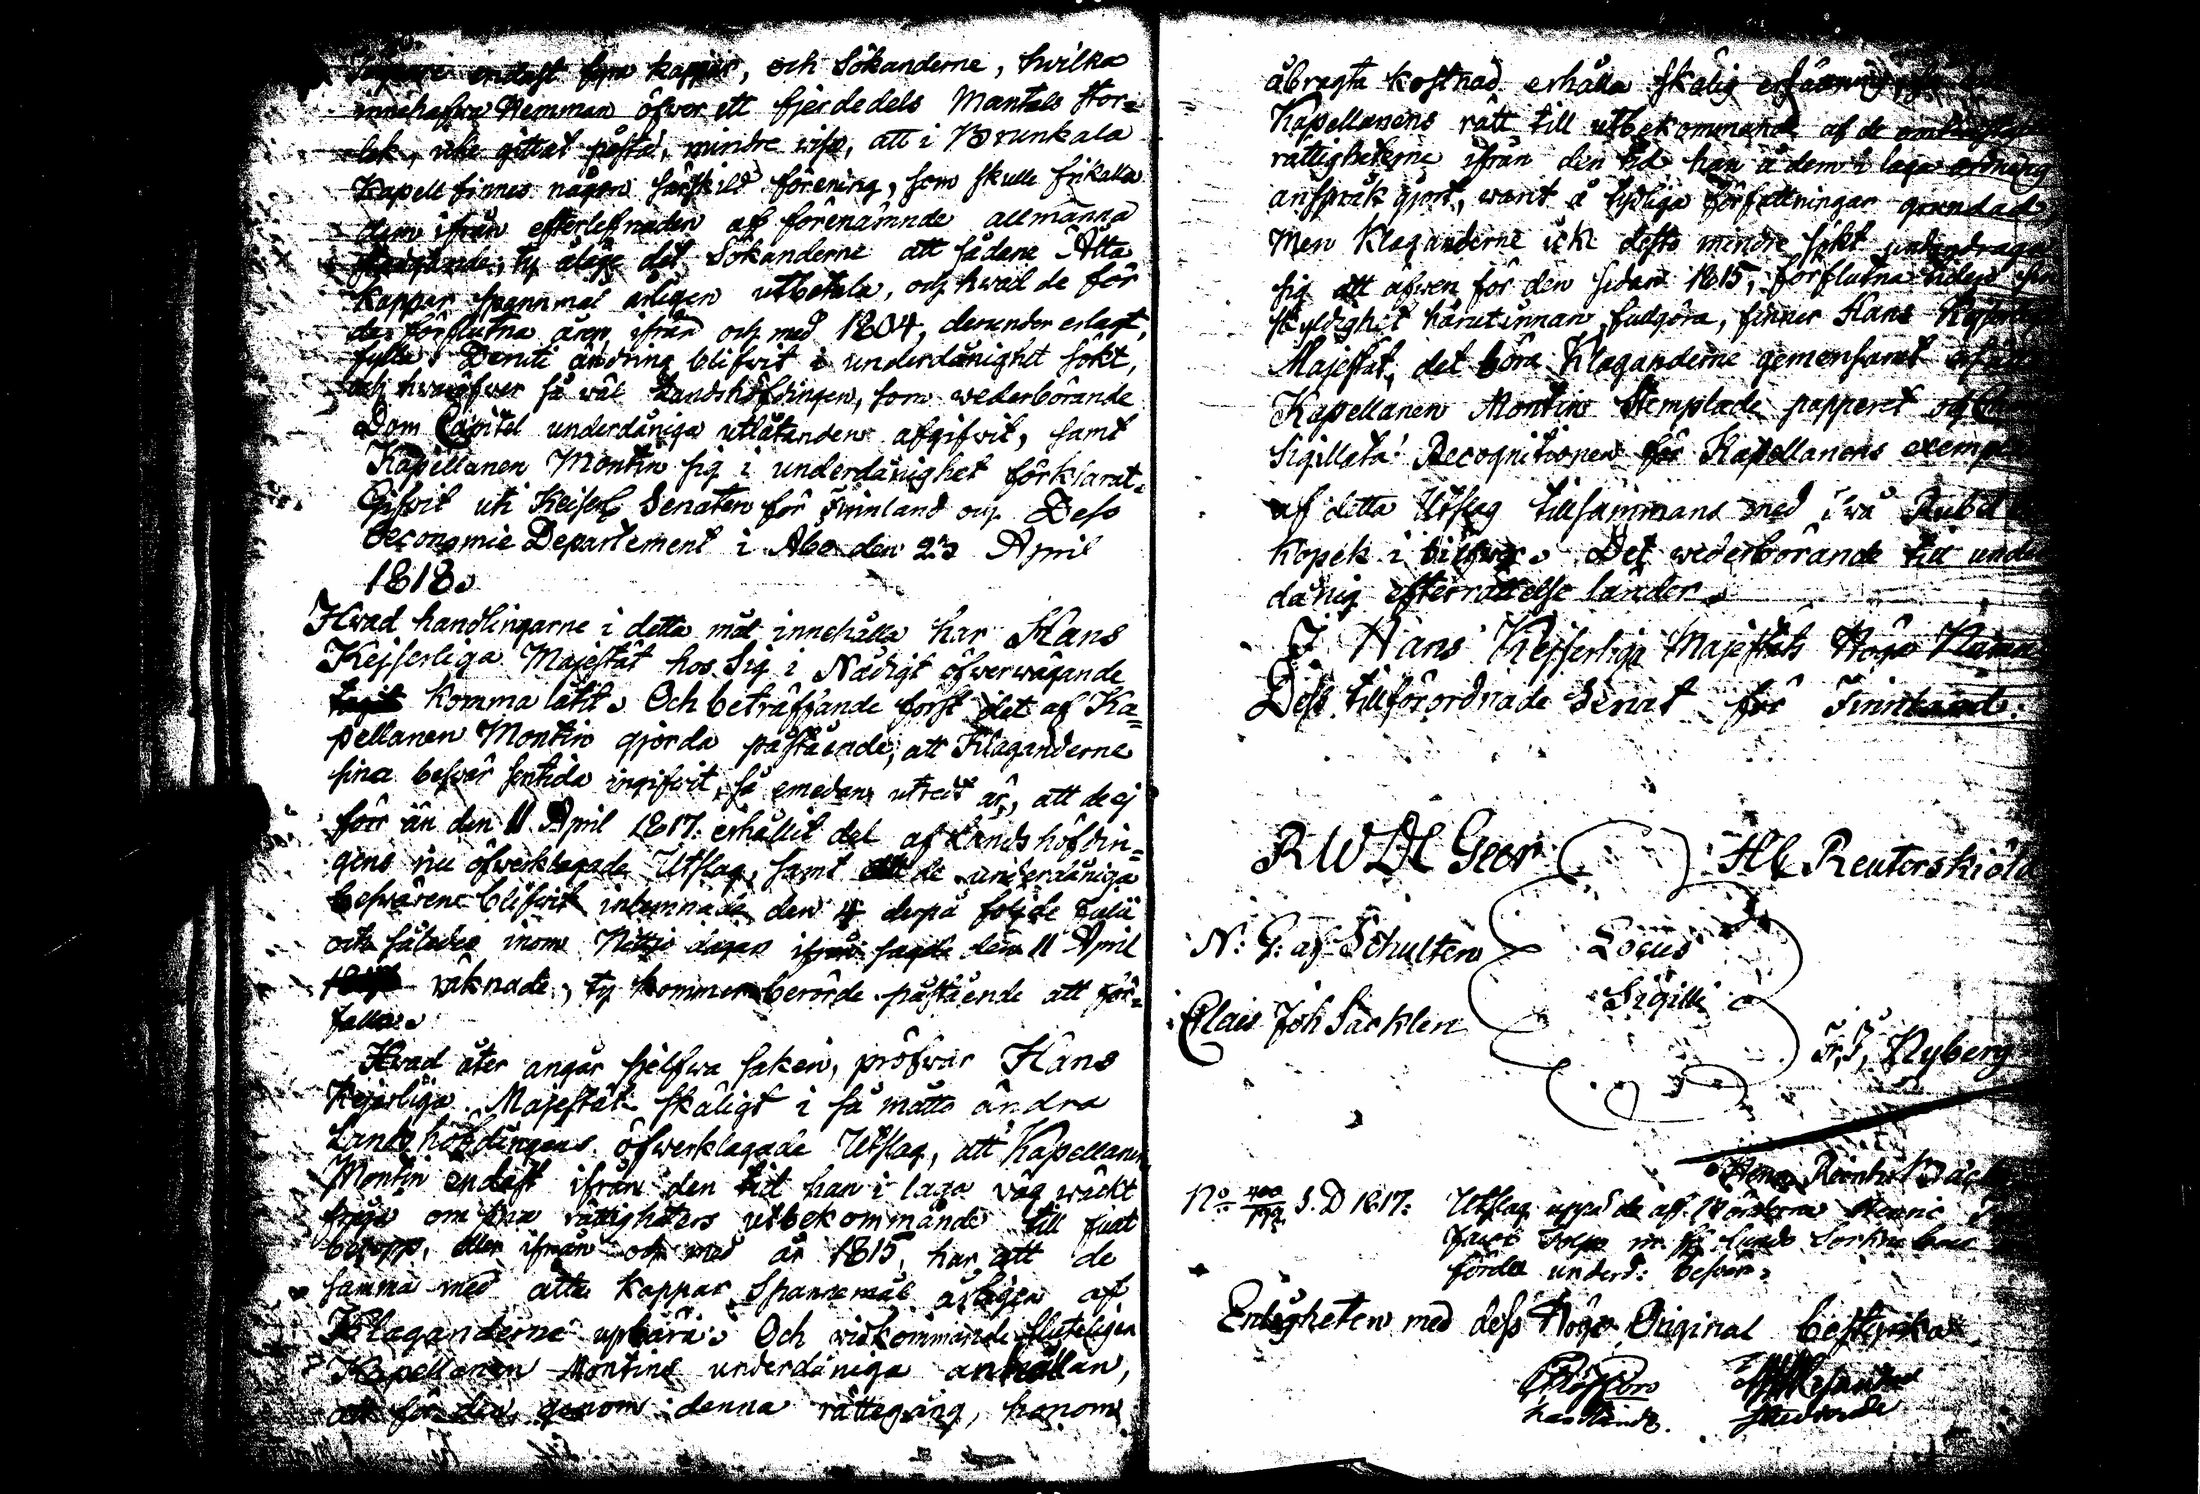 endast fem kappar, och Sökanderne, hwilka
innehafwa Hemman öfwer ett fjerdedels Mantals stor=
lek, icke gittat påstå, mindre wisa, att i Brunkala
Kapell finnes någon särskild förening, som skulle frikalla
dem ifrån efterlefnaden af förenämnde allmänna
stadgande; ty ålåge det Sökanderne att sådane Åtta
kappar spannmål årligen utbetala, och hwad de för
de förflutna åren, ifrån och med 1804, derunder erlagt,
fylla. Deruti ändring blifwit i underdånighet sökt,
och hwaröfwer så wäl Landshöfdingen, som wederbörande
Dom Capitel underdåniga utlåtanden afgifwit, samt
Kapellanen Montin sig i underdånighet förklarat.
Gifwit uti Keiserl. Senaten för Finnland och Dess
Oeconomie Departement i Åbo den 23 April
1818.
Hwad handlingarne i detta mål innehålla har Hans
Kejserliga Majestät hos Sig i Nådigt öfwerwägande
komma låtit. Och beträffande först det af Ka=
pellanen Montin gjorda påstående, att Klaganderne
sina beswär sentida ingifwit, så emedan utredt är, att de ej
förr än den 11 April 1817 erhållit del af Landshöfdin=
gens nu öfwerklagade Utslag, samt de underdåniga
beswären blifwit inlemnade den 4 derpå följde Julii
och således inom Nittio dagar ifrån sagde den 11 April
räknade, ty kommer berörde påstående att för=
falla.
Hwad åter angår sjelfwa saken, pröfwar Hans
Kejserliga Majestät skäligt i så måtto ändra
Landshöfdingens öfwerklagade Utslag, att Kapellanen
Montin endast ifrån den tid han i laga wäg wäckt
fråga om sina rättigheters utbekommande till fullt
belopp, eller ifrån och med år 1815, har att de
samma med åtta kappar Spannemål årligen af
Klaganderne upbära. Och widkommande sluteligen
Kapellanen Montins underdåniga anhållan,
att för den genom denna rättegång, honom
åbragta kostnad erhålla skälig ersättning,
Kapellanens rätt till utbekommande af de
rättigheterne ifrån den tid han å dem i laga ordning
anspråk gjort, warit å tydliga författningar grundad
Men Klaganderne icke desto mindre sökt undandraga
sig att äfwen för den sedan 1815, förflutna tiden sin
skyldighet härutinnan fullgöra, finner Hans Kejserliga
Majestät, det böra Klaganderne gemensamt
Kapellanen Montin Stemplade papperet och
Sigillata Recognitionen för Kapellanens exemplar
af detta Utslag tillsammans med Twå Rubel
kopek i silfwer. Det wederbörande till under
dånig efterrättelse länder.
I Hans Kejserliga Majestäts Höga Namn
Dess tillförordnade Senat för Finnland.
R W De Geer H C Reuterskiöld
N: G: af Schultén Locus
Sigilli
Clais Joh Sacklen
Fr. J. Nyberg
No 400 S. D 1817: Utslag uppå de af Bönderne
förda underd: beswär.
Enligheten med dess Höga Original bestyrka